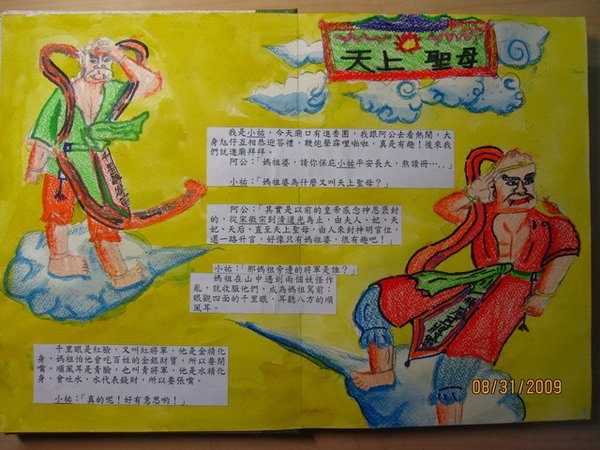 天上 聖母
我是小祐，今天廟口有進香團，我跟阿公去看熱鬧，大
身尪仔互相恭迎答禮，鞭炮聲霹哩啪啦，真是有趣！後來我
們就進廟拜拜。
阿公：「媽祖婆，請你保庇小祐平安長大，熬讀冊…..」
小祐：「媽祖婆為什麼又叫天上聖母？」
阿公：「其實是以前的皇帝感念神恩褒封
的，從宋徽宗到清道光為止，由夫人、妃、天
妃、天后、直至天上聖母，由人來封神明官位，
還一路升官，好像只有媽祖婆，很有趣吧！」
小祐：「那媽祖旁邊的將軍是誰？」
媽祖在山中遇到兩個妖怪作
亂，就收服他們，成為媽祖駕前：
眼觀四面的千里眼，耳聽八方的順
風耳。
千里眼是紅臉，又叫紅將軍，他是金精化
身，媽祖怕他會吃百姓的金銀財寶，所以要閉
嘴。順風耳是青臉，也叫青將軍，他是水精化
身，會吐水，水代表錢財，所以要張嘴。
小祐：「真的呢！好有意思喲！」
08/31/2009